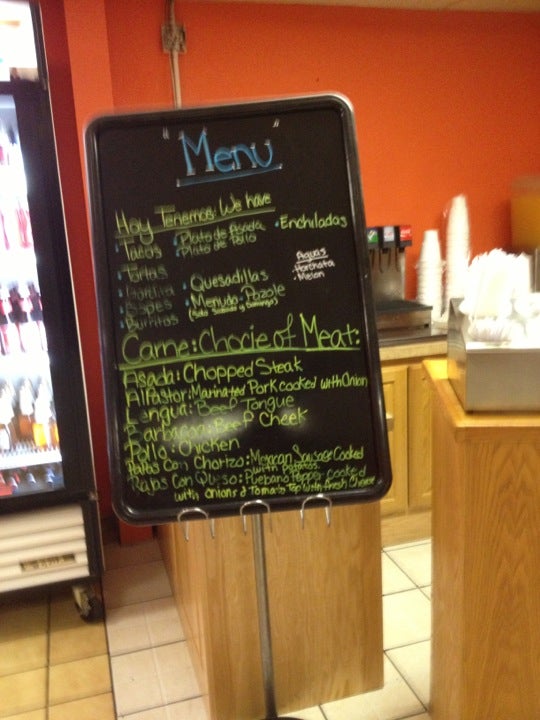 "Menu"
Hoy Tenemos: We have
Tacos
Tortas
Gordita
Sopes
Burritos
• Plato de Asada
• Plato de Pollo
• Quesadillas
• Menudo • Pozole
(Solo Sabado y Domingo)
• Enchiladas
Aguas
• Horchata
• Melon
Carne: Chocie of Meat:
Asada: Chopped Steak
Al Pastor: Marinated Pork cooked with Onion
Lengua: Beef Tongue
Barbacoa: Beef Cheek
Pollo: Chicken
Papas Con Chorizo: Mexican Sausage Cooked
with potatos.
Rajas Con Queso: Puebano Pepper cooked
with onions & Tomato Top with fresh Cheese